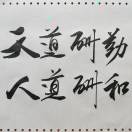 天道酬勤
人道酬和